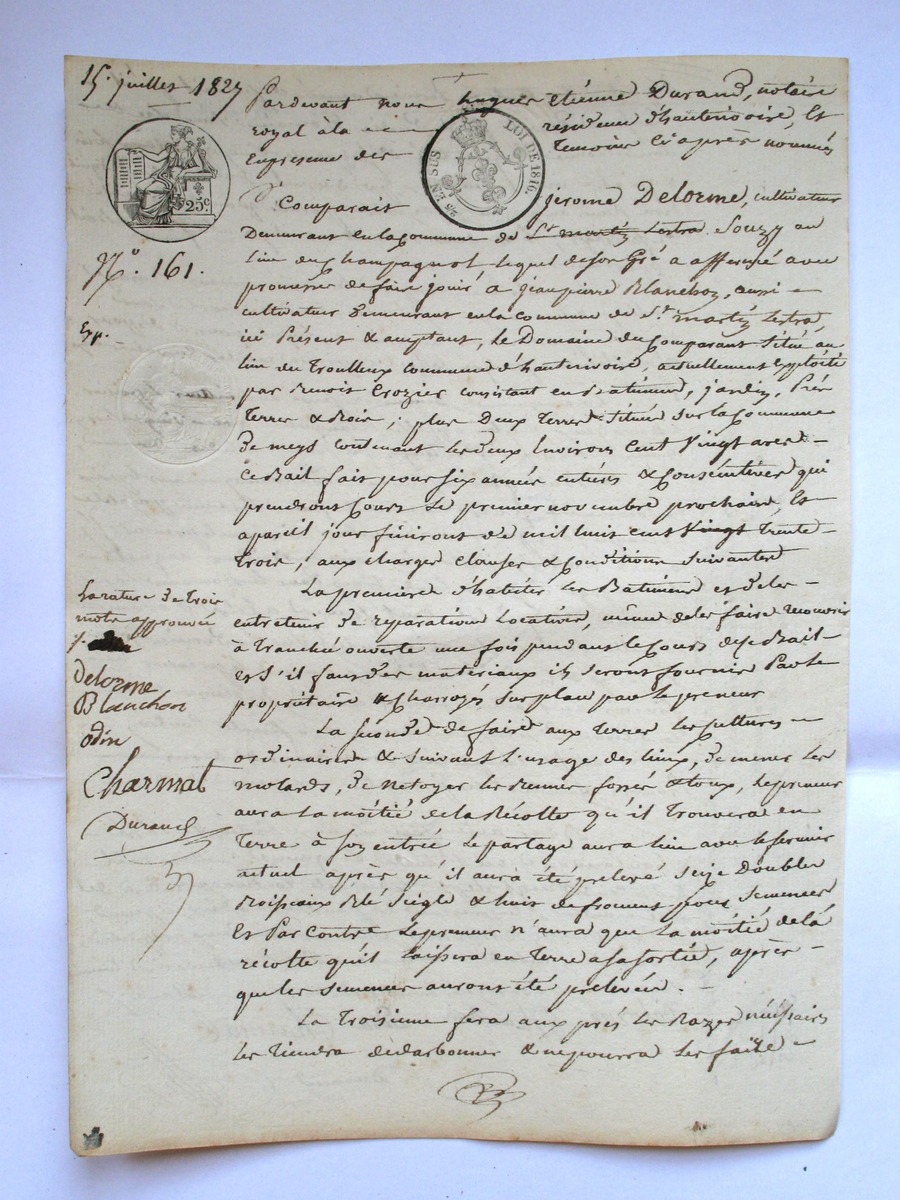 15. juillet 1827
Pardevant nous hugues étienne Durand, notaire
royal à la résidence d'hauterivoire, Et
En présence des témoins ci après nommés
25c.
25 EN SUS LOI DE 1816.
Comparait jérome Delorme, cultivateur
Demeurant en la commune de St martin Lestra Souzy au
lieu du Champagnol lequel de son gré a affermé avec
promesse de faire jouir à jeanpierre Blanchon, aussi
cultivateur Demeurant en la commune de St. martin Lestra,
ici Présent & acceptant, le Domaine du Comparant Situé au
lieu du Troulleux commune d'hauterivoire, actuellement Exploité
par Benoit Crozier consistant en Batiment, jardin, Prés
Terres & Bois ; plus Deux Terres Situées sur la Commune
De meys contenant les deux Environ cent vingt ares
Ce Bail fait pour six années entières & consécutives qui
prendront cours le premier novembre prochain, Et
a pareil jour finiront de mil huit cent vingt Trente
Trois, aux charges clauses & conditions suivantes
La première d'habiter les Batiments et de les
entretenir de réparations locatives, même de les faire recouvrir
à Tranchée ouverte une fois pendant le cours de ce Bail
et s'il faut des materiaux ils seront fournis Par le
propriétaire & Charroyés sur place par le preneur
La seconde de faire aux Terres les cultures
ordinaires & suivant l'usage des lieux, de mener les
molards, de netoyer les fossés Le preneur
aura La moitié de la Récolte qu'il Trouvera en
Terre à son entrée Le partage aura lieu avec le fermier
actuel après qu'il aura été prelevé seize Doubles
Boisseaux Blé seigle & huit de froment pour semences
Et Par contre Le preneur n'aura que La moitié de la
récolte qu'il laissera en Terre a sa sortie, après
que les semences auront été prelevées.
La Troisième fera aux prés les Razes nécessaires
Les Tiendra & ne pourra Les faire
N°. 161.
Exp.
La rature de Trois
mots approuvée
Delorme
Blanchon
odin
Charmat
Durand